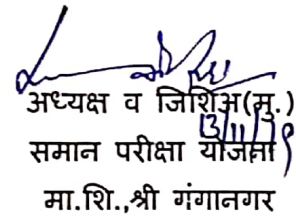 अध्यक्ष व जिशिअ(मु.)
13/11/19
समान परीक्षा योजना
मा.शि.,श्री गंगानगर